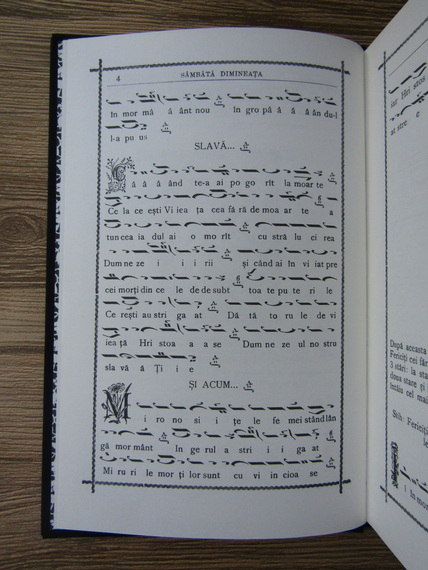 4 SÂMBĂTĂ DIMINEAȚA
În mor mâ â ânt nou în gro pă â â ân du-l
l-a pu us
SLAVĂ...
C â â â ând te-a ai po go rît la moar te
Ce la ce ești Vi iea ța cea fă ră de moa ar te a
tun cea ia dul ai o mo rît cu stră lu ci rea
Dum ne ze i i i rii și când ai în vi iat pre
cei morți din ce le de de subt toa te pu te ri le
Ce rești au stri ga at Dă tă to ru le de vi
iea ță Hri stoa a a se Dum ne ze ul no stru
sla vă Ți i e
ȘI ACUM...
M i ro no si i țe le fe mei stând lân
gă mor mânt În ge rul a stri i i ga at
Mi ru ri le mor ți lor sunt cu vi in cioa se
iar Hri stos
at stre e
După aceasta
Fericiți cei făr
3 stări: la sta
doua stare ți
întâiu cel mai
Stih: Fericiți
le
i în mo